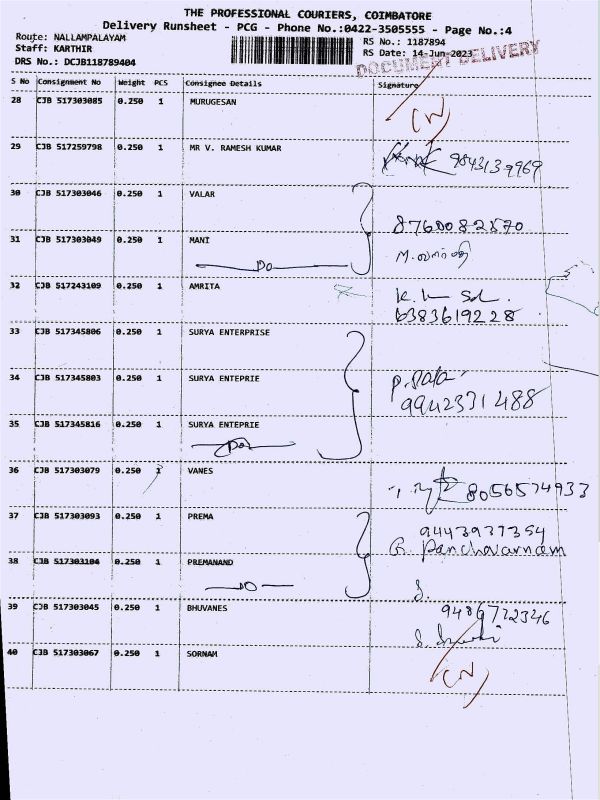 THE PROFESSIONAL COURIERS, COIMBATORE
Delivery Runsheet - PCG - Phone No.:0422-3505555 - Page No.:4
Route: NALLAMPALAYAM
Staff: KARTHIR
DRS No.: DCJB118789404
RS No.: 1187894
RS Date: 14-Jun-2023
DOCUMENT DELIVERY
S No Consignment No Weight PCS Consignee Details Signature
28 CJB 517303085 0.250 1 MURUGESAN
29 CJB 517259798 0.250 1 MR V. RAMESH KUMAR 9843139969
30 CJB 517303046 0.250 1 VALAR 8760082570
31 CJB 517303049 0.250 1 MANI
Do
32 CJB 517243109 0.250 1 AMRITA
6383619228
33 CJB 517345806 0.250 1 SURYA ENTERPRISE
34 CJB 517345803 0.250 1 SURYA ENTEPRIE
9942331488
35 CJB 517345816 0.250 1 SURYA ENTEPRIE
Do
36 CJB 517303079 0.250 1 VANES 8056574933
37 CJB 517303093 0.250 1 PREMA 9443937354
R. Panchavarnam
38 CJB 517303104 0.250 1 PREMANAND
Do
39 CJB 517303045 0.250 1 BHUVANES 9486772346
40 CJB 517303067 0.250 1 SORNAM